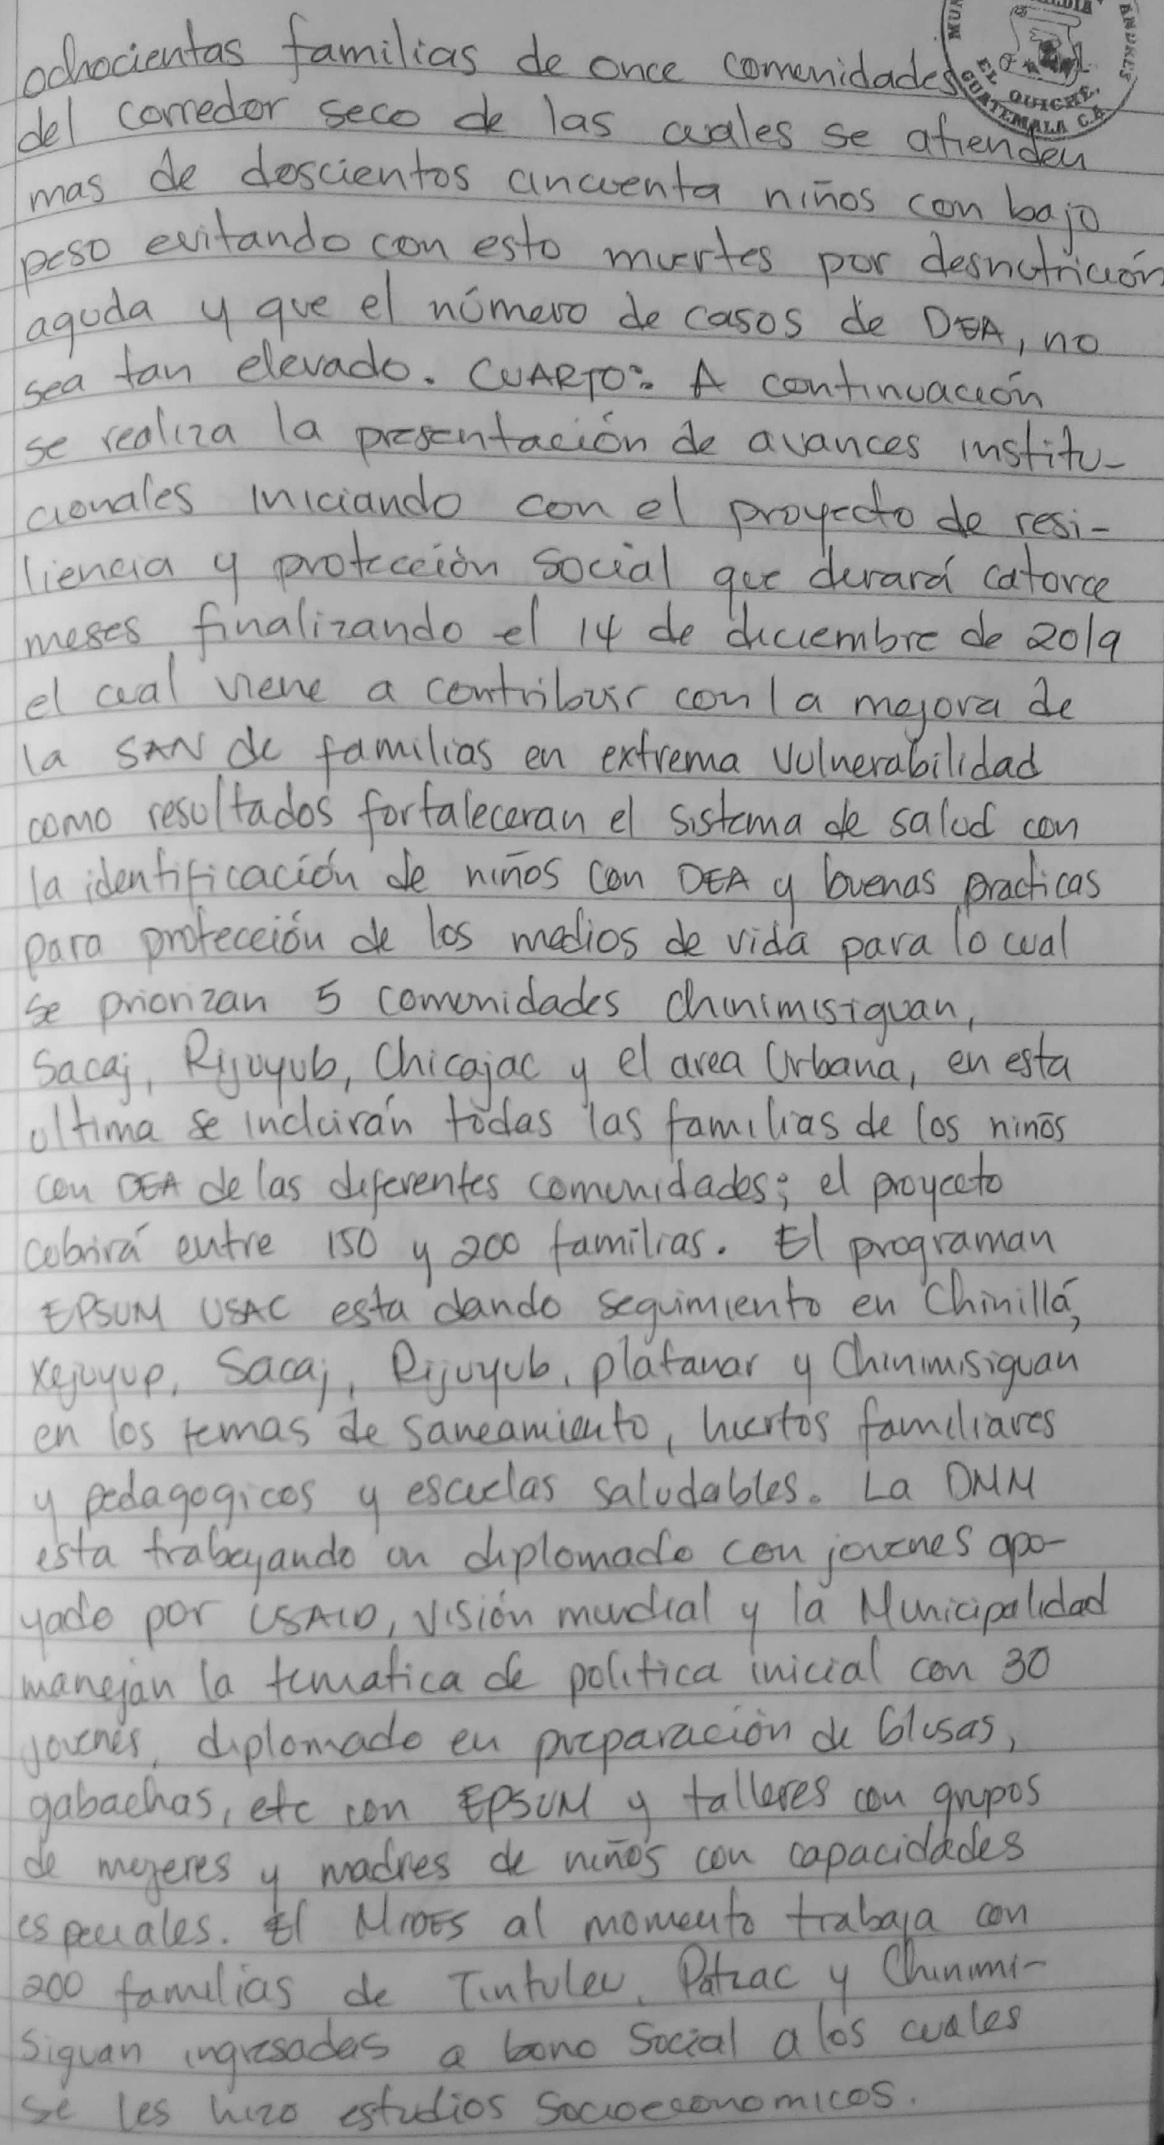 ochocientas familias de once comunidades
del corredor seco de las cuales se atienden
mas de doscientos cincuenta niños con bajo
peso evitando con esto muertes por desnutrición
aguda y que el número de casos de DEA, no
sea tan elevado. CUARTO: A continuación
se realiza la presentación de avances institu-
cionales iniciando con el proyecto de resi-
liencia y protección social que durará catorce
meses finalizando el 14 de diciembre de 2019
el cual viene a contribuir con la mejora de
la SAN de familias en extrema vulnerabilidad
como resultados fortaleceran el sistema de salud con
la identificación de niños con DEA y buenas practicas
para protección de los medios de vida para lo cual
se priorizan 5 comunidades chinimisiguan,
Sacaj, Rijuyub, Chicajac y el area Urbana, en esta
ultima se incluirán todas las familias de los niños
con DEA de las diferentes comunidades; el proyecto
cubrirá entre 150 y 200 familias. El programan
EPSUM USAC esta dando seguimiento en Chinillá,
Xejuyup, Sacaj, Rijuyub, platanar y Chinimisiguan
en los temas de saneamiento, huertos familiares
y pedagogicos y escuelas saludables. La DMM
esta trabajando un diplomado con jovenes apo-
yado por USAID, Visión mundial y la Municipalidad
manejan la tematica de politica inicial con 30
jovenes, diplomado en preparación de blusas,
gabachas, etc con EPSUM y talleres con grupos
de mujeres y madres de niños con capacidades
especiales. El MIDES al momento trabaja con
200 familias de Tintuleu, Patzac y Chinimi-
siguan ingresadas a bono Social a los cuales
se les hizo estudios socioeconomicos.
EL QUICHE,
GUATEMALA C.A.